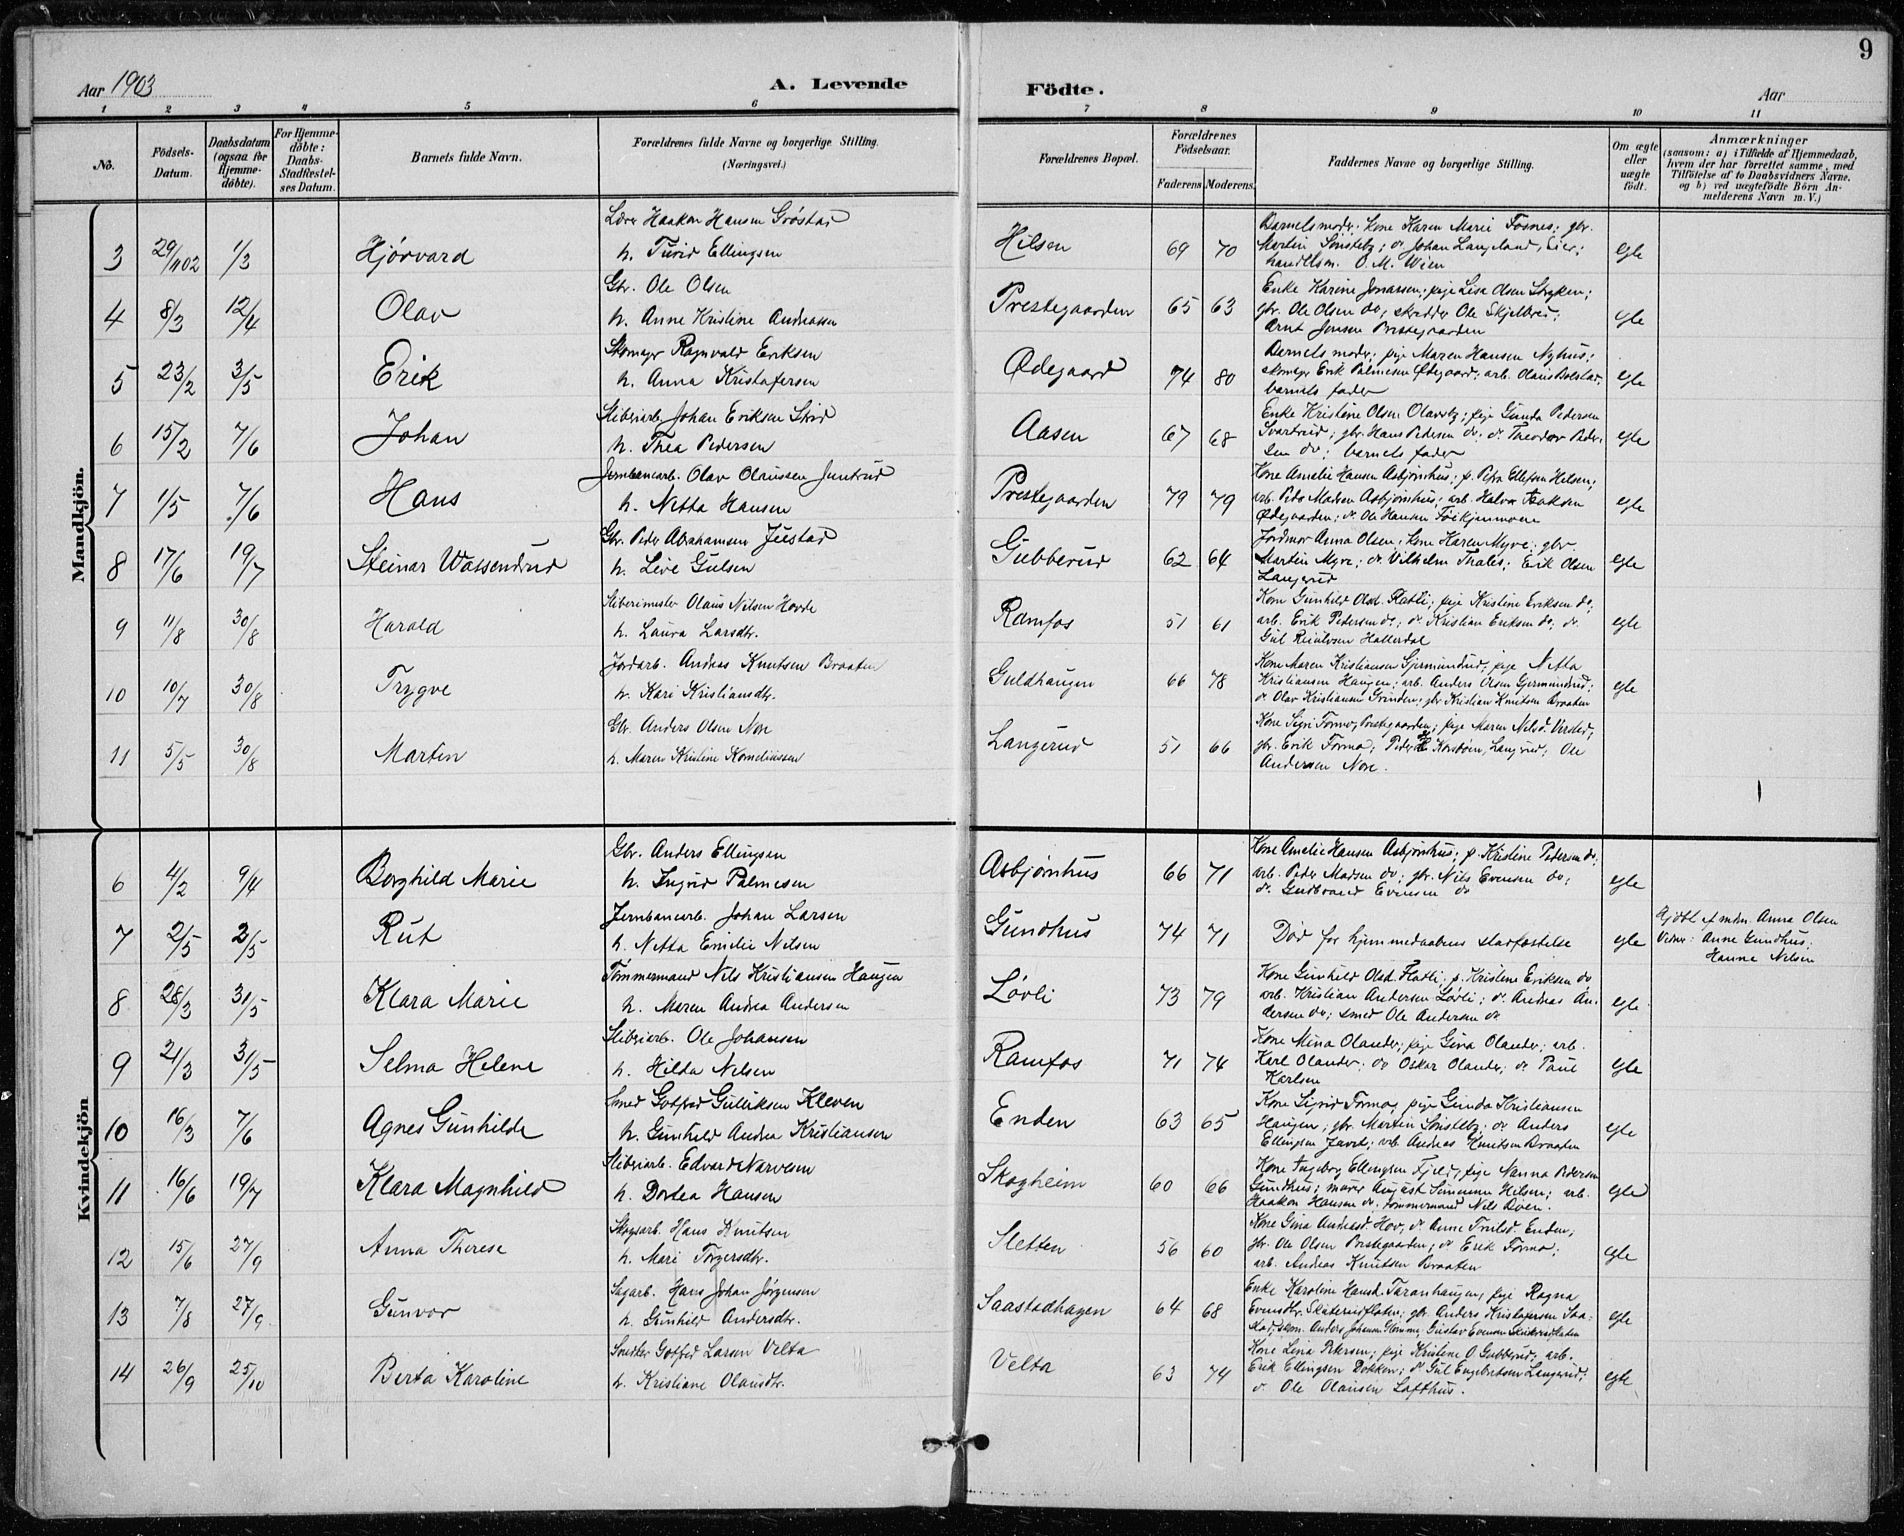 9
Aar 1903
A. Levende
Födte.
Aar
1 2 3 4 5 6 7 8 9 10 11
No.
Födsels-
Datum.
Daabsdatum
(ogsaa for
Hjemme-
döbte).
For Hjemme-
döbte:
Daabs-
Stadfæstel-
ses Datum.
Barnets fulde Navn.
Forældrenes fulde Navne og borgerlige Stilling.
(Næringsvei.)
Forældrenes Bopæl.
Forældrenes
Födselsaar.
Faderens Moderens
Faddernes Navne og borgerlige Stilling.
Om ægte
eller
uægte
födt.
Anmærkninger
(saasom: a) i Tilfælde af Hjemmedaab,
hvem der har forrettet samme, med
Tilföielse af to Daabsvidners Navne,
og b) ved uægtefödte Börn An-
melderens Navn m. V.)
Mandkjön.
3 29/11 02 1/3 Hjörvard
Lærer Haakon Hansen Gröstad
h. Turid Ellingsen
Hilsen 69 70
Barnets moder; kone Karen Marie Fosnes; gbr.
Martin Sönsteby; do Johan Langeland, Eier;
handelsm. O. M. Wien
egte
4 8/3 12/4 Olav
Gbr. Ole Olsen
h. Anne Kristine Andreassen
Prestegaarden 65 63
Enke Karine Jonassen; pige Lisa Olsen
gbr. Ole Olsen do; skrædder Ole
Arnt Jensen Prestegaarden
egte
5 23/2 3/5 Erik
Skomager Ragnvald Eriksen
h. Anna Kristofersen
Ødegaard 74 80
Barnets moder; pige Maren Hansen Nyhus;
skomager Erik Palmesen Ødegaard; arb. Olaus Bolstad;
barnets fader
egte
6 15/2 7/6 Johan
Sliberiarb. Johan Eriksen
h. Thea Pedersen
Aasen 67 68
Enke Kristine Olsen Olavsby; pige Gunda Pedersen
Svartrud; gbr. Hans Pedersen do; do Theodor Peder-
sen do; barnets fader
egte
7 1/5 7/6 Hans
Jernbanearb. Olav Olaussen
h. Netta Hansen
Prestegaarden 79 79
Kone Amelie Hansen Asbjörnhus; p. Petra Ellefsen Hilsen;
arb. Peder Madsen Asbjörnhus; arb. Halvor Isaksen
Ødegaarden; do Ole Hansen
egte
8 17/6 19/7 Steinar Wassendrud
Gbr. Peder Abrahamsen
h. Live Gulsen
Gubberud 62 64
Jordmor Anna Olsen; kone Karen Myre; gbr.
Martin Myre; do Vilhelm Thales; Erik Olsen
Langerud
egte
9 11/8 30/8 Harald
Sliberimester Olaus Nilsen Hovde
h. Laura Larsdtr.
Ramfos 51 61
Kone Gunhild Olsd. Flatli; pige Kristine Eriksen do;
arb. Erik Pedersen do; do Kristian Eriksen do; do
Gul Hallerdal
egte
10 10/7 30/8 Trygve
Jordarb. Andreas Knutsen Braaten
h. Kari Kristiansdtr.
Guldhaugen 66 78
Kone Maren Kristiansen Gjermundrud; pige Netta
Kristiansen Haugen; arb. Anders Olsen Gjermundrud;
do Olav Kristiansen Grinden; gbr. Kristian Knutsen Braaten
egte
11 5/5 30/8 Martin
Gbr. Anders Olsen Nore
h. Maren Kristine Korneliussen
Langerud 51 66
Kone Sigri Formo, Prestegaarden; pige Maren Nilsd.
gbr. Erik Formo; Peder Langerud; Ole
Andersen Nore.
Kvindekjön
6 4/2 9/4 Borghild Marie
Gbr. Anders Ellingsen
h. Ingrid Palmesen
Asbjörnhus 66 71
Kone Amelie Hansen Asbjörnhus; p. Kristine Pedersen do;
arb. Peder Madsen do; gbr. Nils Evensen do;
do Gudbrand Evensen do
egte
7 2/5 2/5 Rut
Jernbanearb. Johan Larsen
h. Netta Emilie Nilsen
Gundhus 74 71
Död för hjemmedaabens stadfestelse
egte
Hjdöbt af mdm. Anna Olsen
Vidner: Anne Gundhus;
Hanne Nilsen
8 28/3 31/5 Klara Marie
Tömmermand Nils Kristiansen Haugen
h. Maren Andrea Andersen
Lövli 73 79
Kone Gunhild Olsd. Flatli; p. Kristine Eriksen do
arb. Kristian Andersen Lövli; do Andreas An-
dersen do; smed Ole Andersen do
egte
9 21/3 31/5 Selma Helene
Sliberiarb. Ole Johansen
h. Hilda Nilsen
Ramfos 71 74
Kone Mina Olander; pige Gina Olander; arb.
Karl Olander; do Oskar Olander; do Paul
Karlsen
egte
10 16/3 7/6 Agnes Gunhilde
Smed Gotfred Gulliksen Kleven
h. Gunhild Andrea Kristiansen
Enden 63 65
Kone Sigrid Formo; pige Gunda Kristiansen
Haugen; gbr. Martin Sönsteby; do Anders
Ellingsen; arb. Andreas Knutsen Braaten
egte
11 16/6 19/7 Klara Magnhild
Sliberiarb. Edvard Narvesen
h. Dortea Hansen
Skogheim 60 66
Kone Ingeborg Ellingsen Fjeld; pige Nanna Pedersen
Gundhus; murer August Simensen Hilsen; arb.
Haakon Hansen do; tömmermand Nils
egte
12 15/6 27/9 Anna Therese
Skogsarb. Hans Knutsen
h. Mari Torgersdtr.
Sletten 56 60
Kone Gina Andreasd. Hov; do Anne Trulsd. Enden;
gbr. Ole Olsen Prestegaarden; do Erik Formo;
arb. Andreas Knutsen Braaten
egte
13 7/8 27/9 Gunvor
Sagarb. Hans Johan Jörgensen
h. Gunhild Andersdtr.
Saastadhagen 64 68
Enke Karoline Hansd. Taranhaugen; pige Ragna
Evensdtr. Skaterudflaten; gbr. Anders Kristofersen Saa-
stad; skom. Anders Johansen Glomme; Gustav Evensen Skaterudflaten
egte
14 26/9 25/10 Berta Karoline
Snedker Gotfred Larsen Velta
h. Kristiane Olausdtr.
Velta 63 74
Kone Lina Petersen; pige Kristine O. Gubberud; arb.
Erik Ellingsen Dokken; do Gul Engebretsen Langerud;
do Ole Olausen Lofthus.
egte